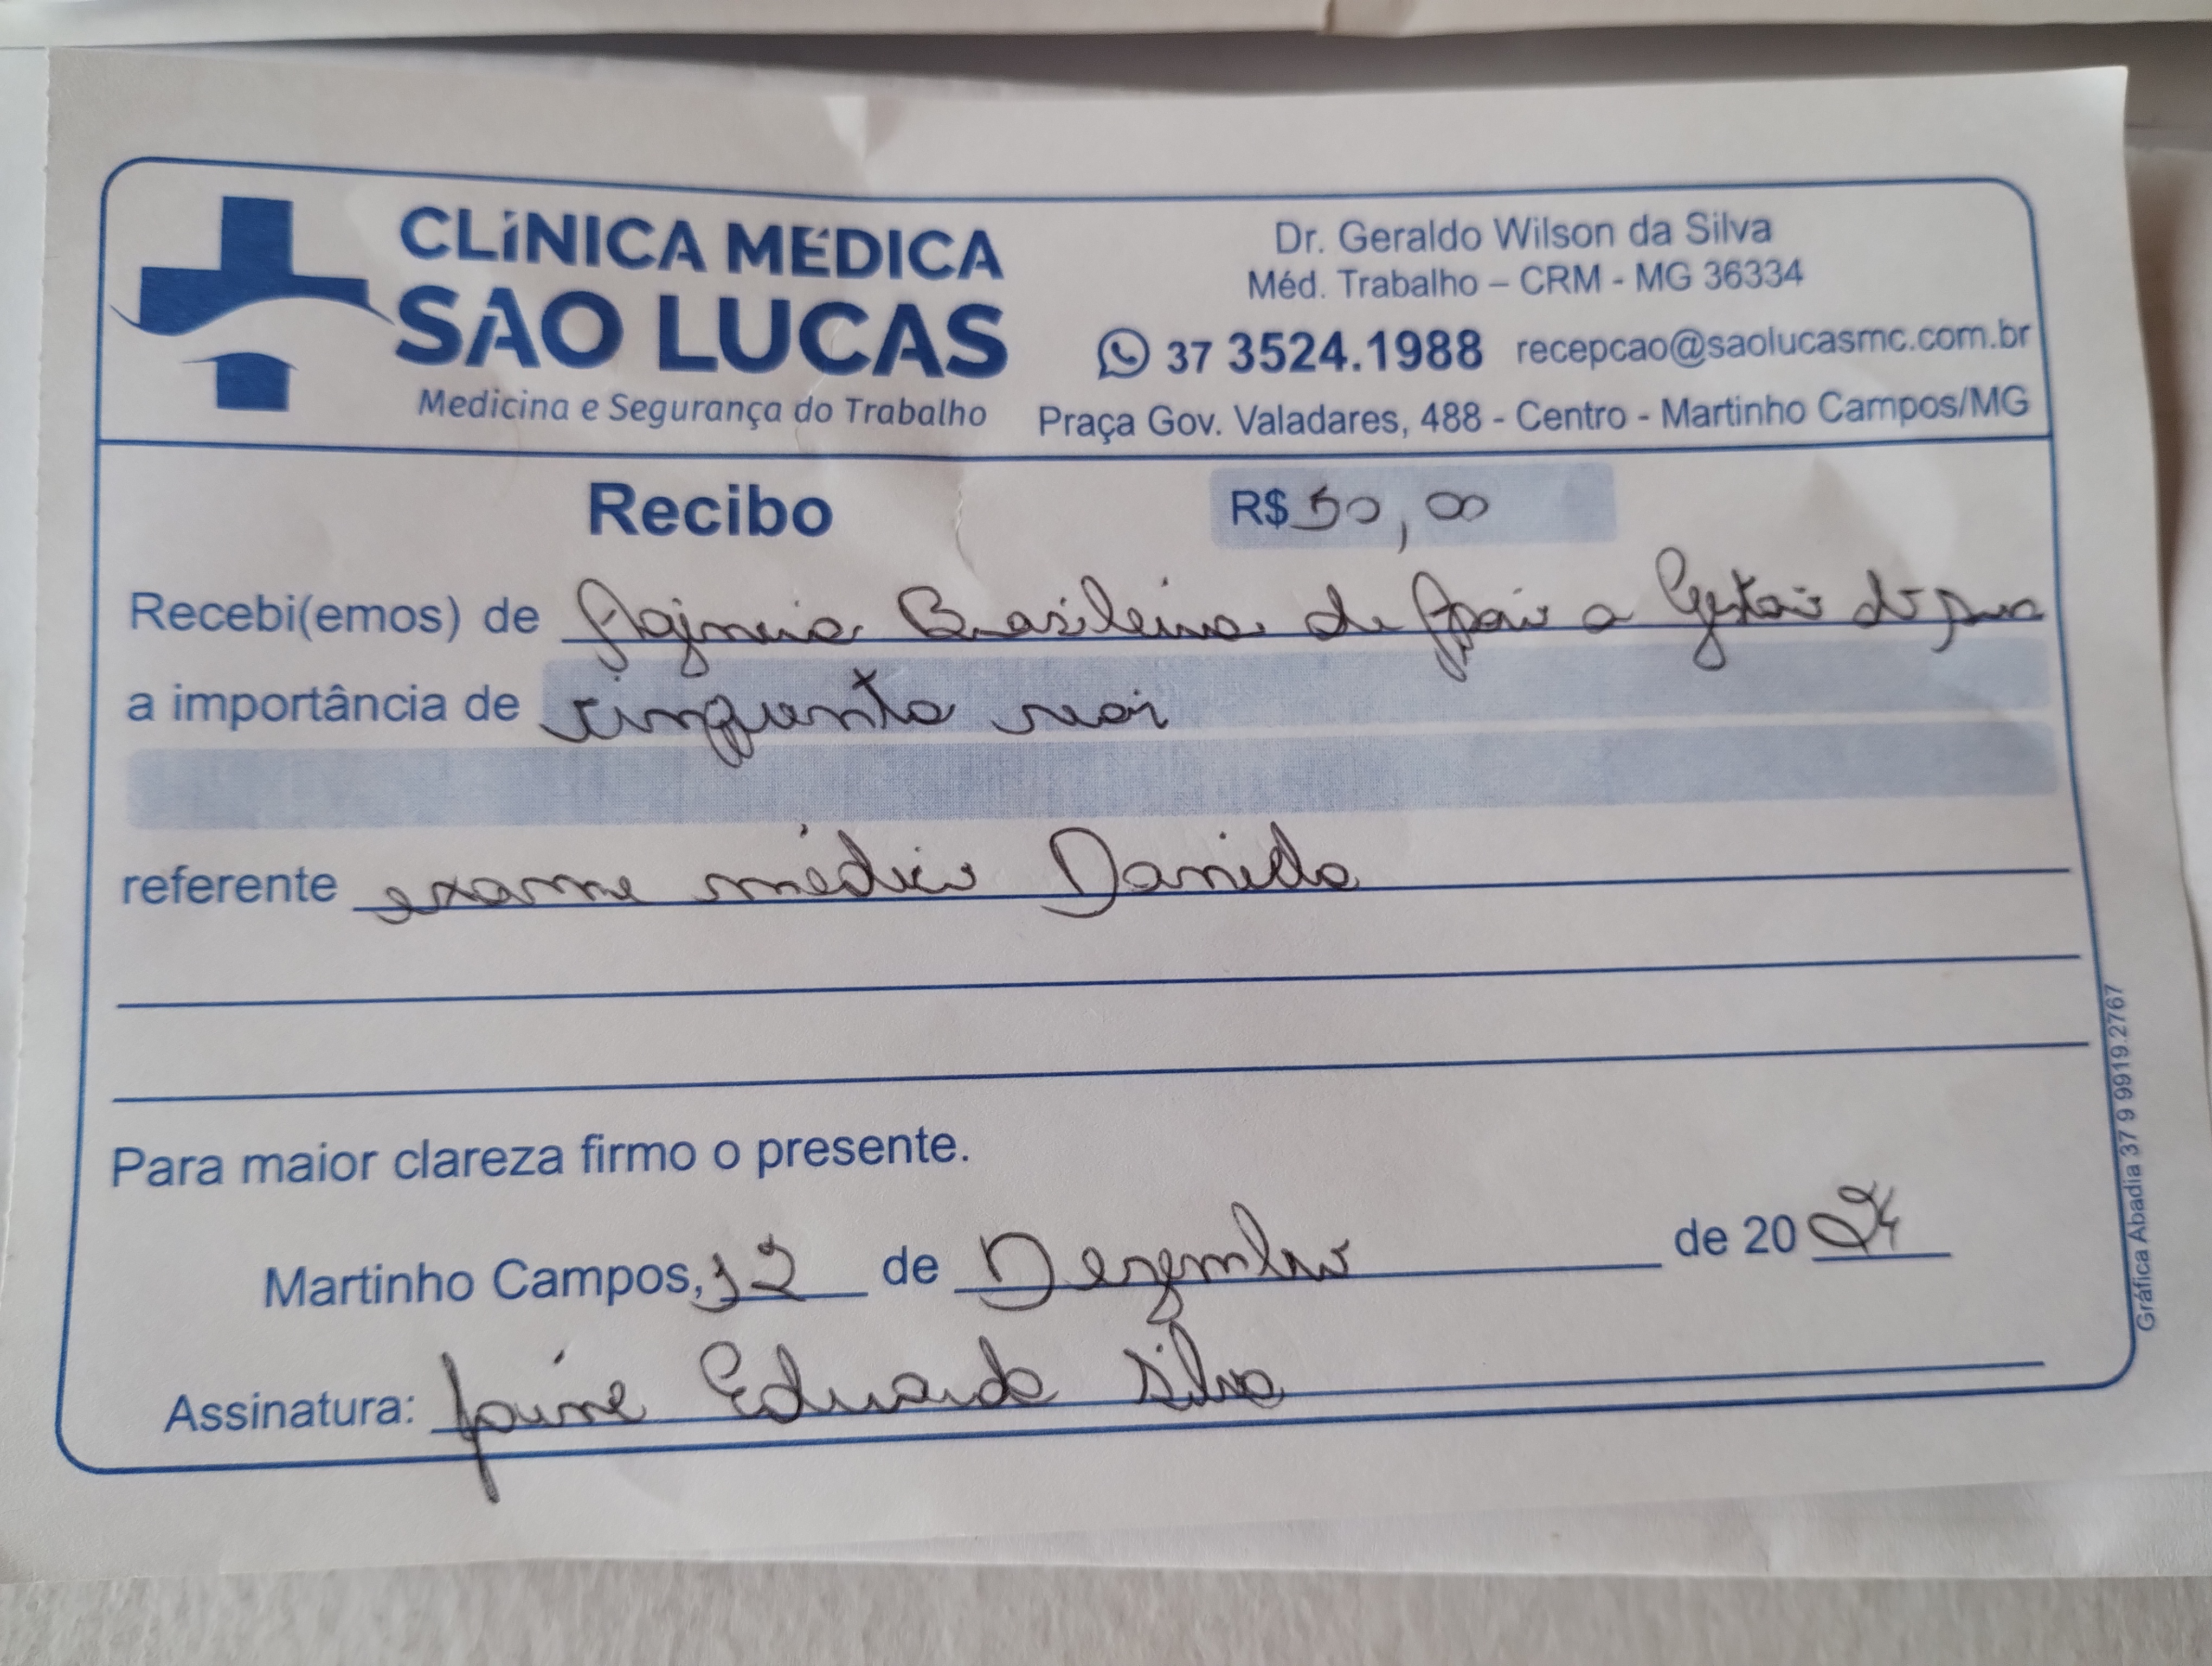 CLÍNICA MÉDICA
SÃO LUCAS
Medicina e Segurança do Trabalho
Dr. Geraldo Wilson da Silva
Méd. Trabalho – CRM - MG 36334
37 3524.1988 recepcao@saolucasmc.com.br
Praça Gov. Valadares, 488 - Centro - Martinho Campos/MG
Recibo
R$ 50,00
Recebi(emos) de Agência Brasileira de Apoio a Gestão do SUS
a importância de cinquenta reais
referente exame médico Daniela
Para maior clareza firmo o presente.
Martinho Campos, 12 de Dezembro de 2024
Assinatura: Joime Eduarda Silva
Gráfica Abadia 37 9 9919.2767